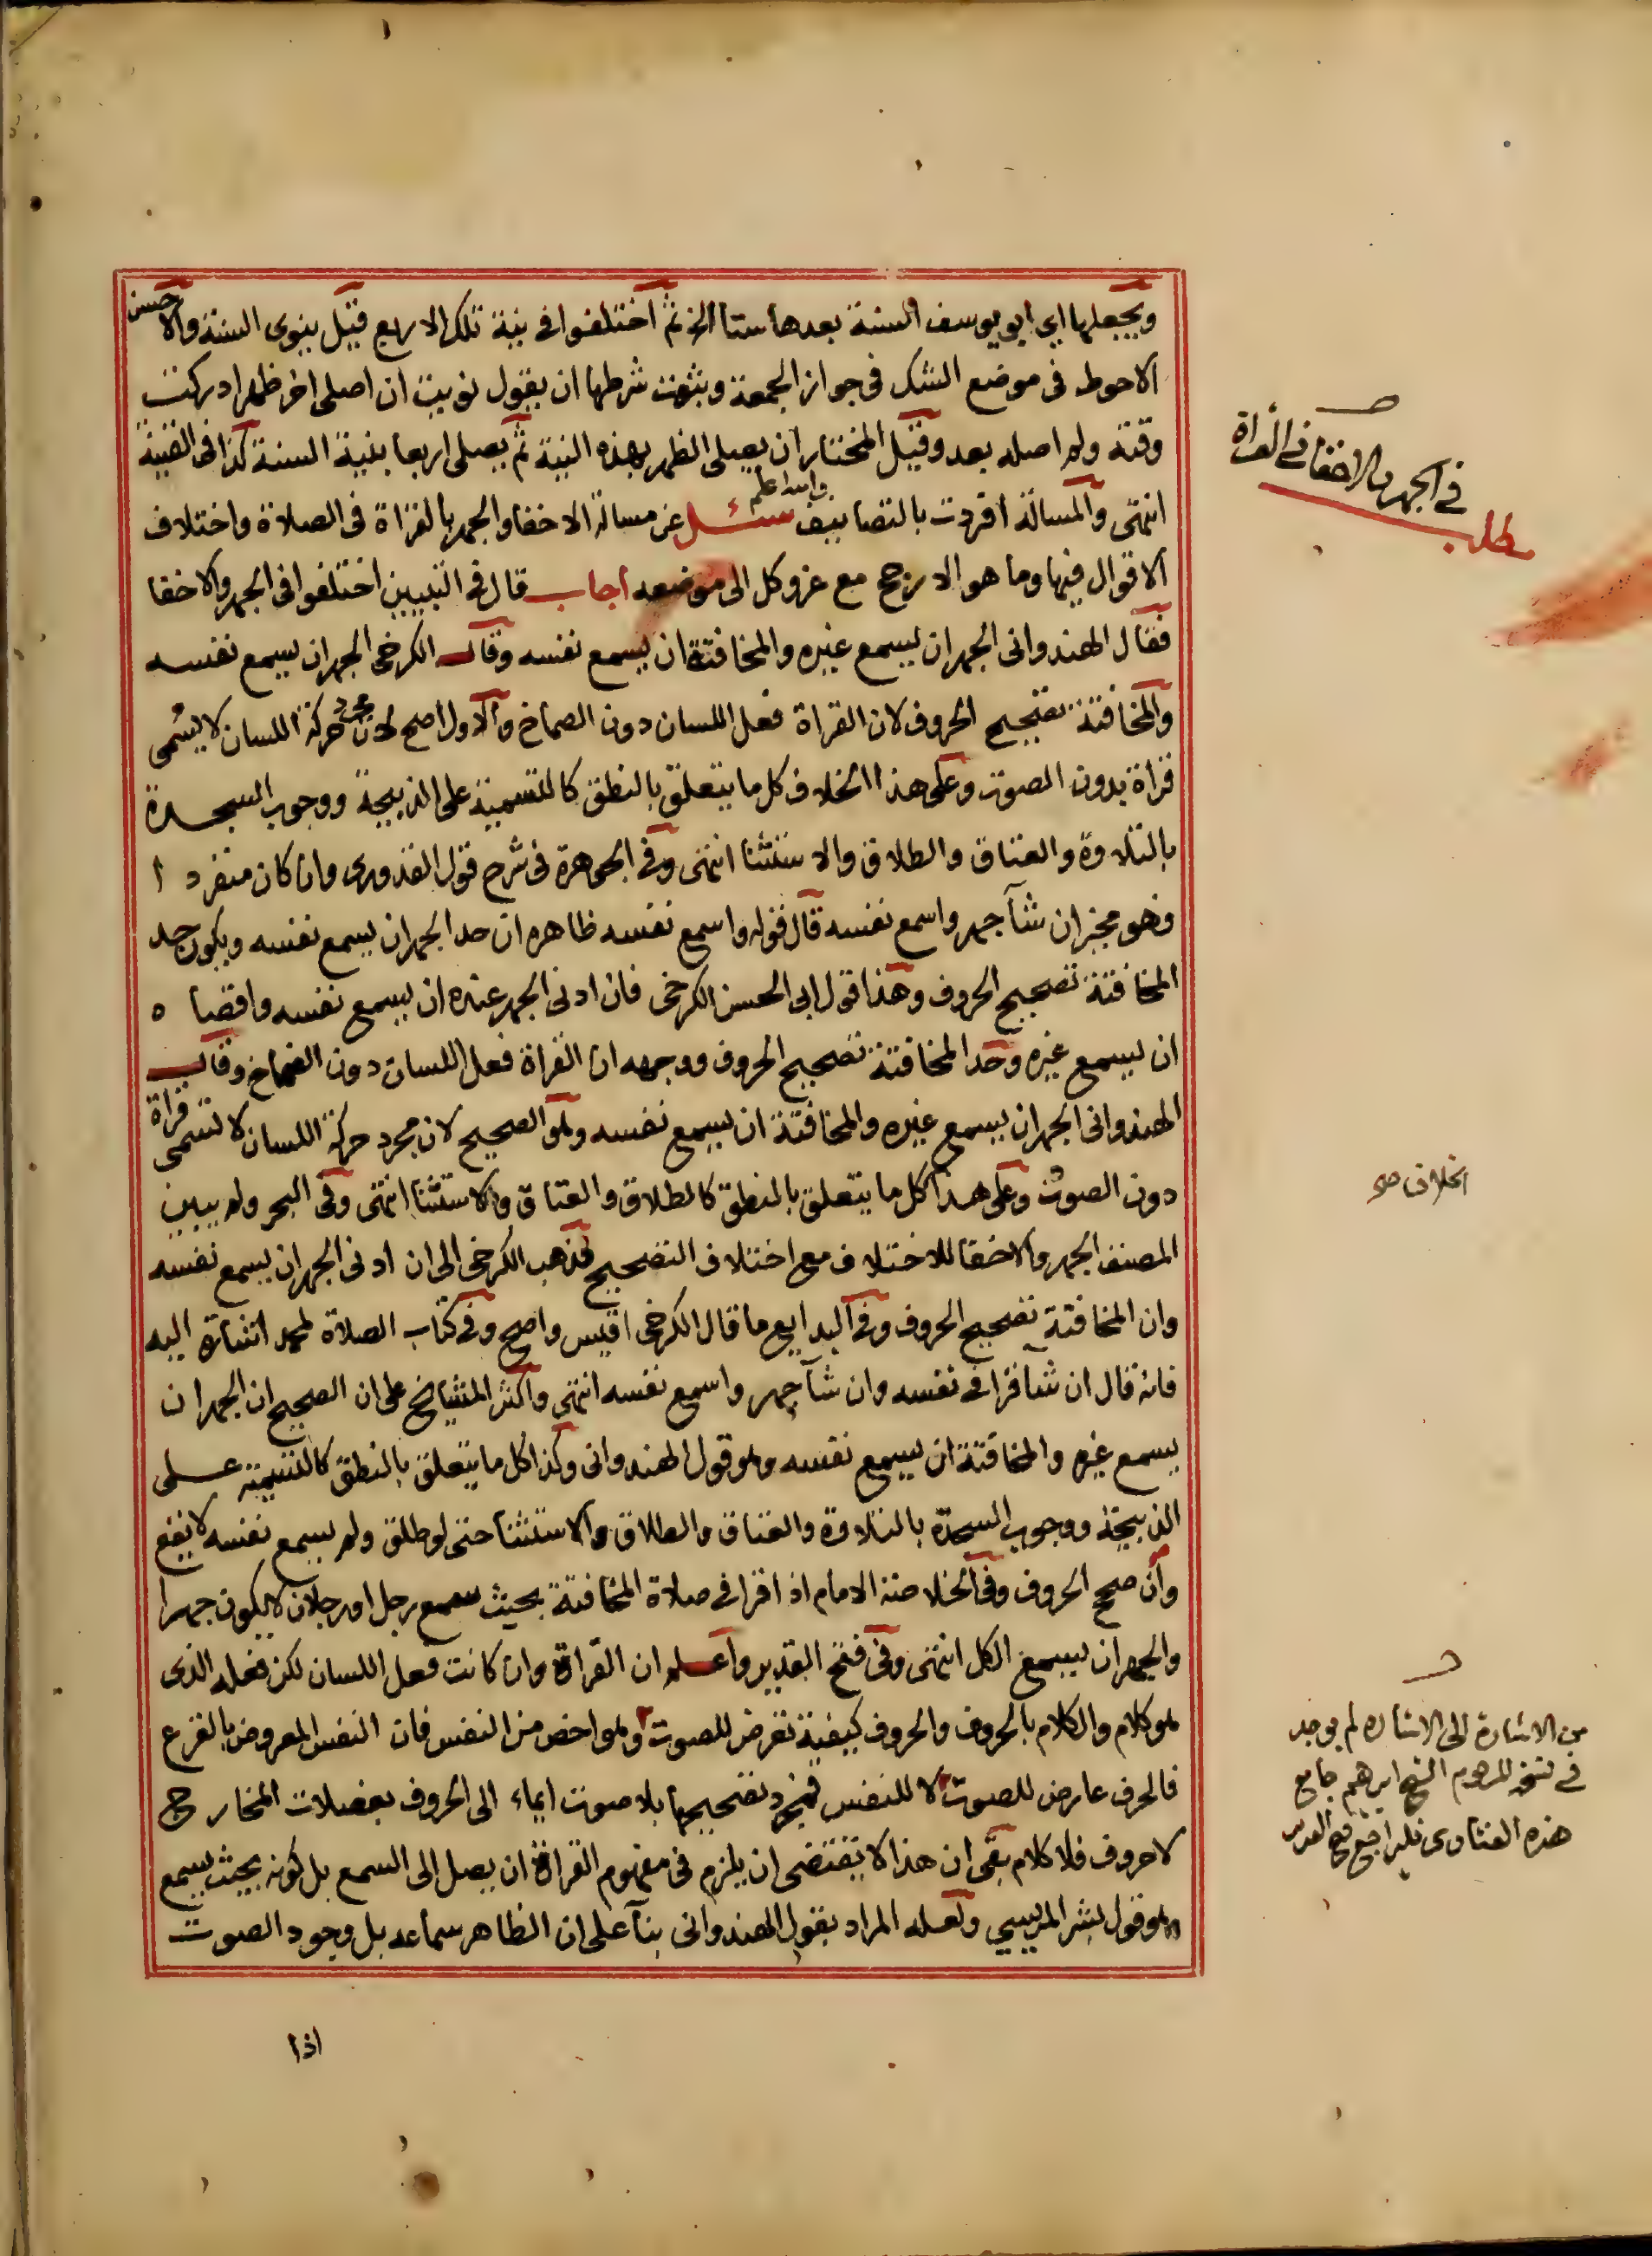 ويجعلها اي ابو يوسف السنة بعدها ستا الخ ثم اختلفوا في نية تلك الاربع قيل ينوى السنة والاحسن
الاحوط في موضع الشك في جواز الجمعة وثبوت شرطها ان يقول نويت ان اصلي اخر ظهر ادركت
وقته ولم اصله بعد وقيل المختار ان يصلى الظهر بهذه النية ثم يصلى اربعا بنية السنة كذا في القنية
انتهى والمسالة افردت بالتصانيف والله اعلم سئل عن مسالة الاخفا والجهر بالقراة في الصلاة واختلاف
الاقوال فيها وما هو الارجح مع عزو كل الى موضعه اجاب قال في التبيين اختلفوا في الجهر والاخفا
فقال الهندواني الجهر ان يسمع غيره والمخافتة ان يسمع نفسه وقال الكرخي الجهر ان يسمع نفسه
والمخافتة تصحيح الحروف لان القراة فعل اللسان دون الصماخ والاول اصح لان مجرد حركة اللسان لا يسمى
قراة بدون الصوت وعلى هذا الخلاف كل ما يتعلق بالنطق كالتسمية على الذبيحة ووجوب السجدة
بالتلاوة والعتاق والطلاق والاستثنا انتهى وفي الجوهرة في شرح قول القدوري وان كان منفردا
فهو مخير ان شآ جهر واسمع نفسه قال قوله واسمع نفسه ظاهره ان حد الجهر ان يسمع نفسه ويكون حد
المخافتة تصحيح الحروف وهذا قول ابي الحسن الكرخي فان ادنى الجهر عنده ان يسمع نفسه واقصاه
ان يسمع غيره وحد المخافتة تصحيح الحروف ووجهه ان القراة فعل اللسان دون الصماخ وقال
الهندواني الجهر ان يسمع غيره والمخافتة ان يسمع نفسه وهو الصحيح لان مجرد حركة اللسان لا تسمى قراة
دون الصوت وعلى هذا كل ما يتعلق بالمنطق كالطلاق والعتاق والاستثنا انتهى وفي البحر ولم يبين
المصنف الجهر والاخفا للاختلاف مع اختلاف التصحيح فذهب الكرخي الى ان ادنى الجهر ان يسمع نفسه
وان المخافتة تصحيح الحروف وفي البدايع ما قال الكرخي اقيس واصح وفي كتاب الصلاة لمحمد اشارة اليه
فانه قال ان شا قرا في نفسه وان شآ جهر واسمع نفسه انتهى واكثر المشايخ على ان الصحيح ان الجهر ان
يسمع غيره والمخافتة ان يسمع نفسه وهو قول الهندواني وكذا كل ما يتعلق بالنطق كالتسمية على
الذبيحة ووجوب السجدة بالتلاوة والعتاق والطلاق والاستثنا حتى لو طلق ولم يسمع نفسه لا يقع
وان صحح الحروف وفي الخلاصة الامام اذا قرا في صلاة المخافتة بحيث سمع رجل او رجلان لا يكون جهرا
والجهر ان يسمع الكل انتهى وفي فتح القدير واعلم ان القراة وان كانت فعل اللسان لكن فعله الذى
هو كلام والكلام بالحروف والحروف كيفية تعرض للصوت وهو اخص من النفس فان النفس المعروض بالقرع
فالحرف عارض للصوت لا للنفس فمجرد تصحيحها بلا صوت ايماء الى الحروف بعضلات المخارج
لا حروف فلا كلام بقى ان هذا لا يقتضى ان يلزم في مفهوم القراة ان يصل الى السمع بل كونه بحيث يسمع
وهو قول بشر المريسي ولعله المراد بقول الهندواني بنآ على ان الظاهر سماعه بل وجود الصوت
اذا
في الجهر والاخفا في القراة
مطلب
الخلاف صح
من الاشارة الى الاشاره لم يوجد
في نسخة المرحوم الشيخ ابرهيم جامع
هذه الفتاوى فليراجع فتح القدير